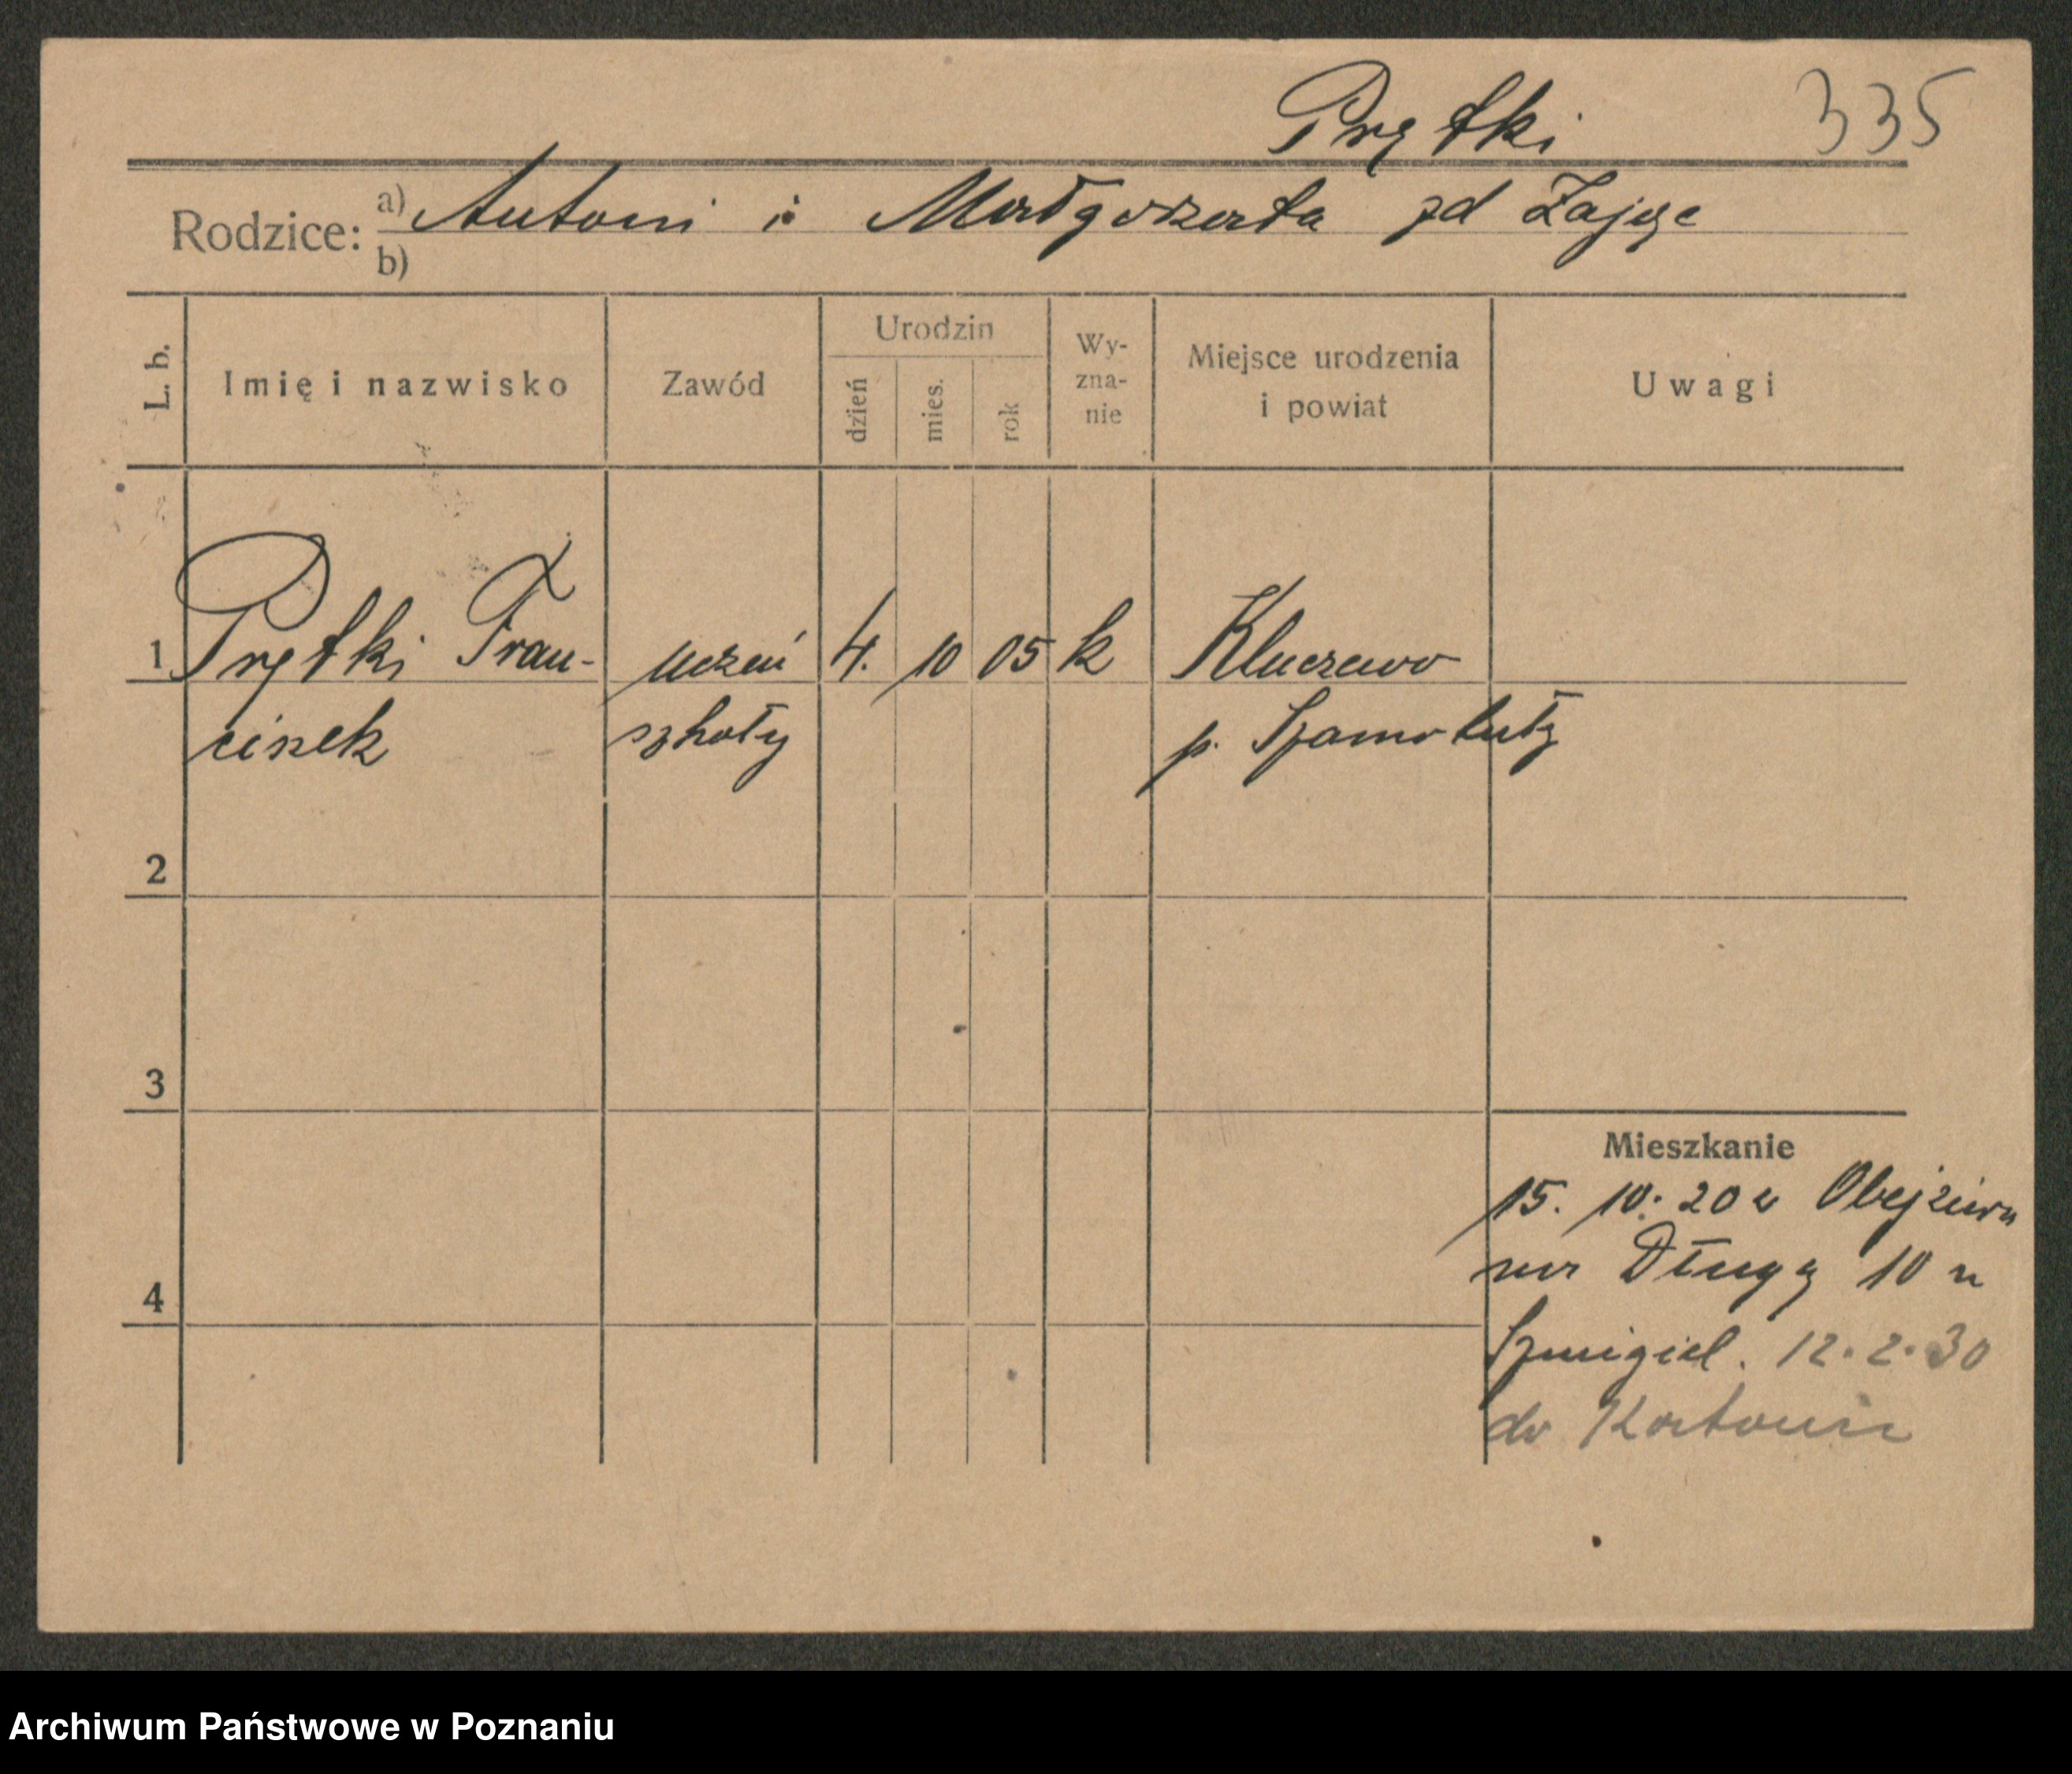 Prętki 335
Rodzice: a) Antoni i Małgorzata zd Zając
b)
L. b. Imię i nazwisko Zawód Urodzin dzień mies. rok Wy-zna-nie Miejsce urodzenia i powiat Uwagi
1 Prętki Fran- uczeń 4. 10 05 k Kluczewo
ciszek szkoły p. Szamotuły
2
3
Mieszkanie
15. 10. 20 z Obejzierza
na Długą 10 u
4
Szmigiel. 12.2.30
do Katowic
Archiwum Państwowe w Poznaniu